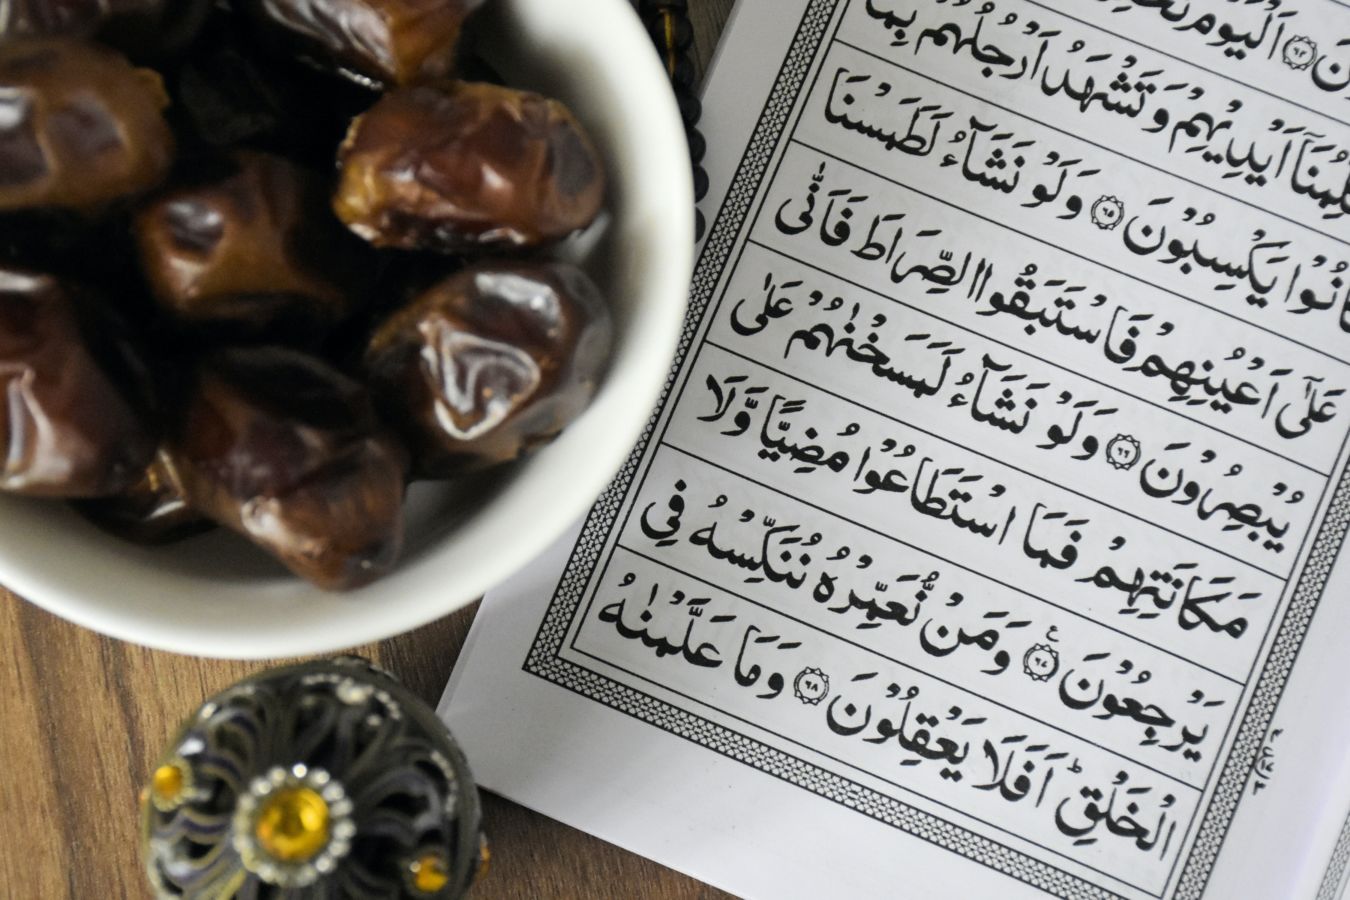 ن ﴿٦٤﴾ اَلْيَوْمَ
وَتُكَلِّمُنَاۤ اَيْدِيْهِمْ وَتَشْهَدُ اَرْجُلُهُمْ بِمَا
كَانُوْا يَكْسِبُوْنَ ﴿٦٥﴾ وَلَوْ نَشَآءُ لَطَمَسْنَا
عَلٰۤى اَعْيُنِهِمْ فَاسْتَبَقُوا الصِّرَاطَ فَاَنّٰى
يُبْصِرُوْنَ ﴿٦٦﴾ وَلَوْ نَشَآءُ لَمَسَخْنٰهُمْ عَلٰى
مَكَانَتِهِمْ فَمَا اسْتَطَاعُوْا مُضِيًّا وَّلَا
يَرْجِعُوْنَ ﴿٦٧﴾ وَمَنْ نُّعَمِّرْهُ نُنَكِّسْهُ فِى
الْخَلْقِؕ اَفَلَا يَعْقِلُوْنَ ﴿٦٨﴾ وَمَا عَلَّمْنٰهُ